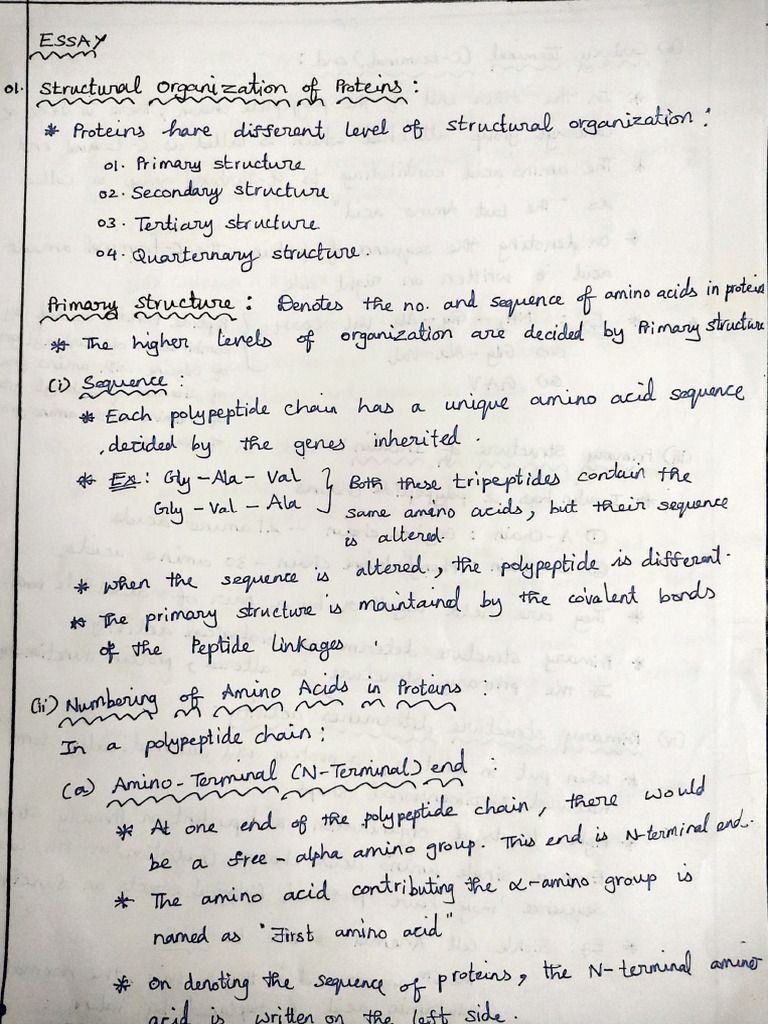 ESSAY
01. Structural Organization of Proteins :
* Proteins have different level of structural organization :
01. Primary structure
02. Secondary structure
03. Tertiary structure
04. Quarternary structure.
Primary Structure : Denotes the no. and sequence of amino acids in protein
* The higher levels of organization are decided by Primary structure
(i) Sequence :
* Each polypeptide chain has a unique amino acid sequence
decided by the genes inherited.
* Ex : Gly - Ala - Val } Both these tripeptides contain the
Gly - Val - Ala same amino acids, but their sequence
is altered.
* when the sequence is altered, the polypeptide is different.
* The primary structure is maintained by the covalent bonds
of the Peptide linkages.
(ii) Numbering of Amino Acids in Proteins :
In a polypeptide chain :
(a) Amino-Terminal (N-Terminal) end :
* At one end of the polypeptide chain, there would
be a free - alpha amino group. This end is N-terminal end.
* The amino acid contributing the α-amino group is
named as "First amino acid"
* On denoting the sequence of proteins, the N-terminal amino
acid is written on the left side.